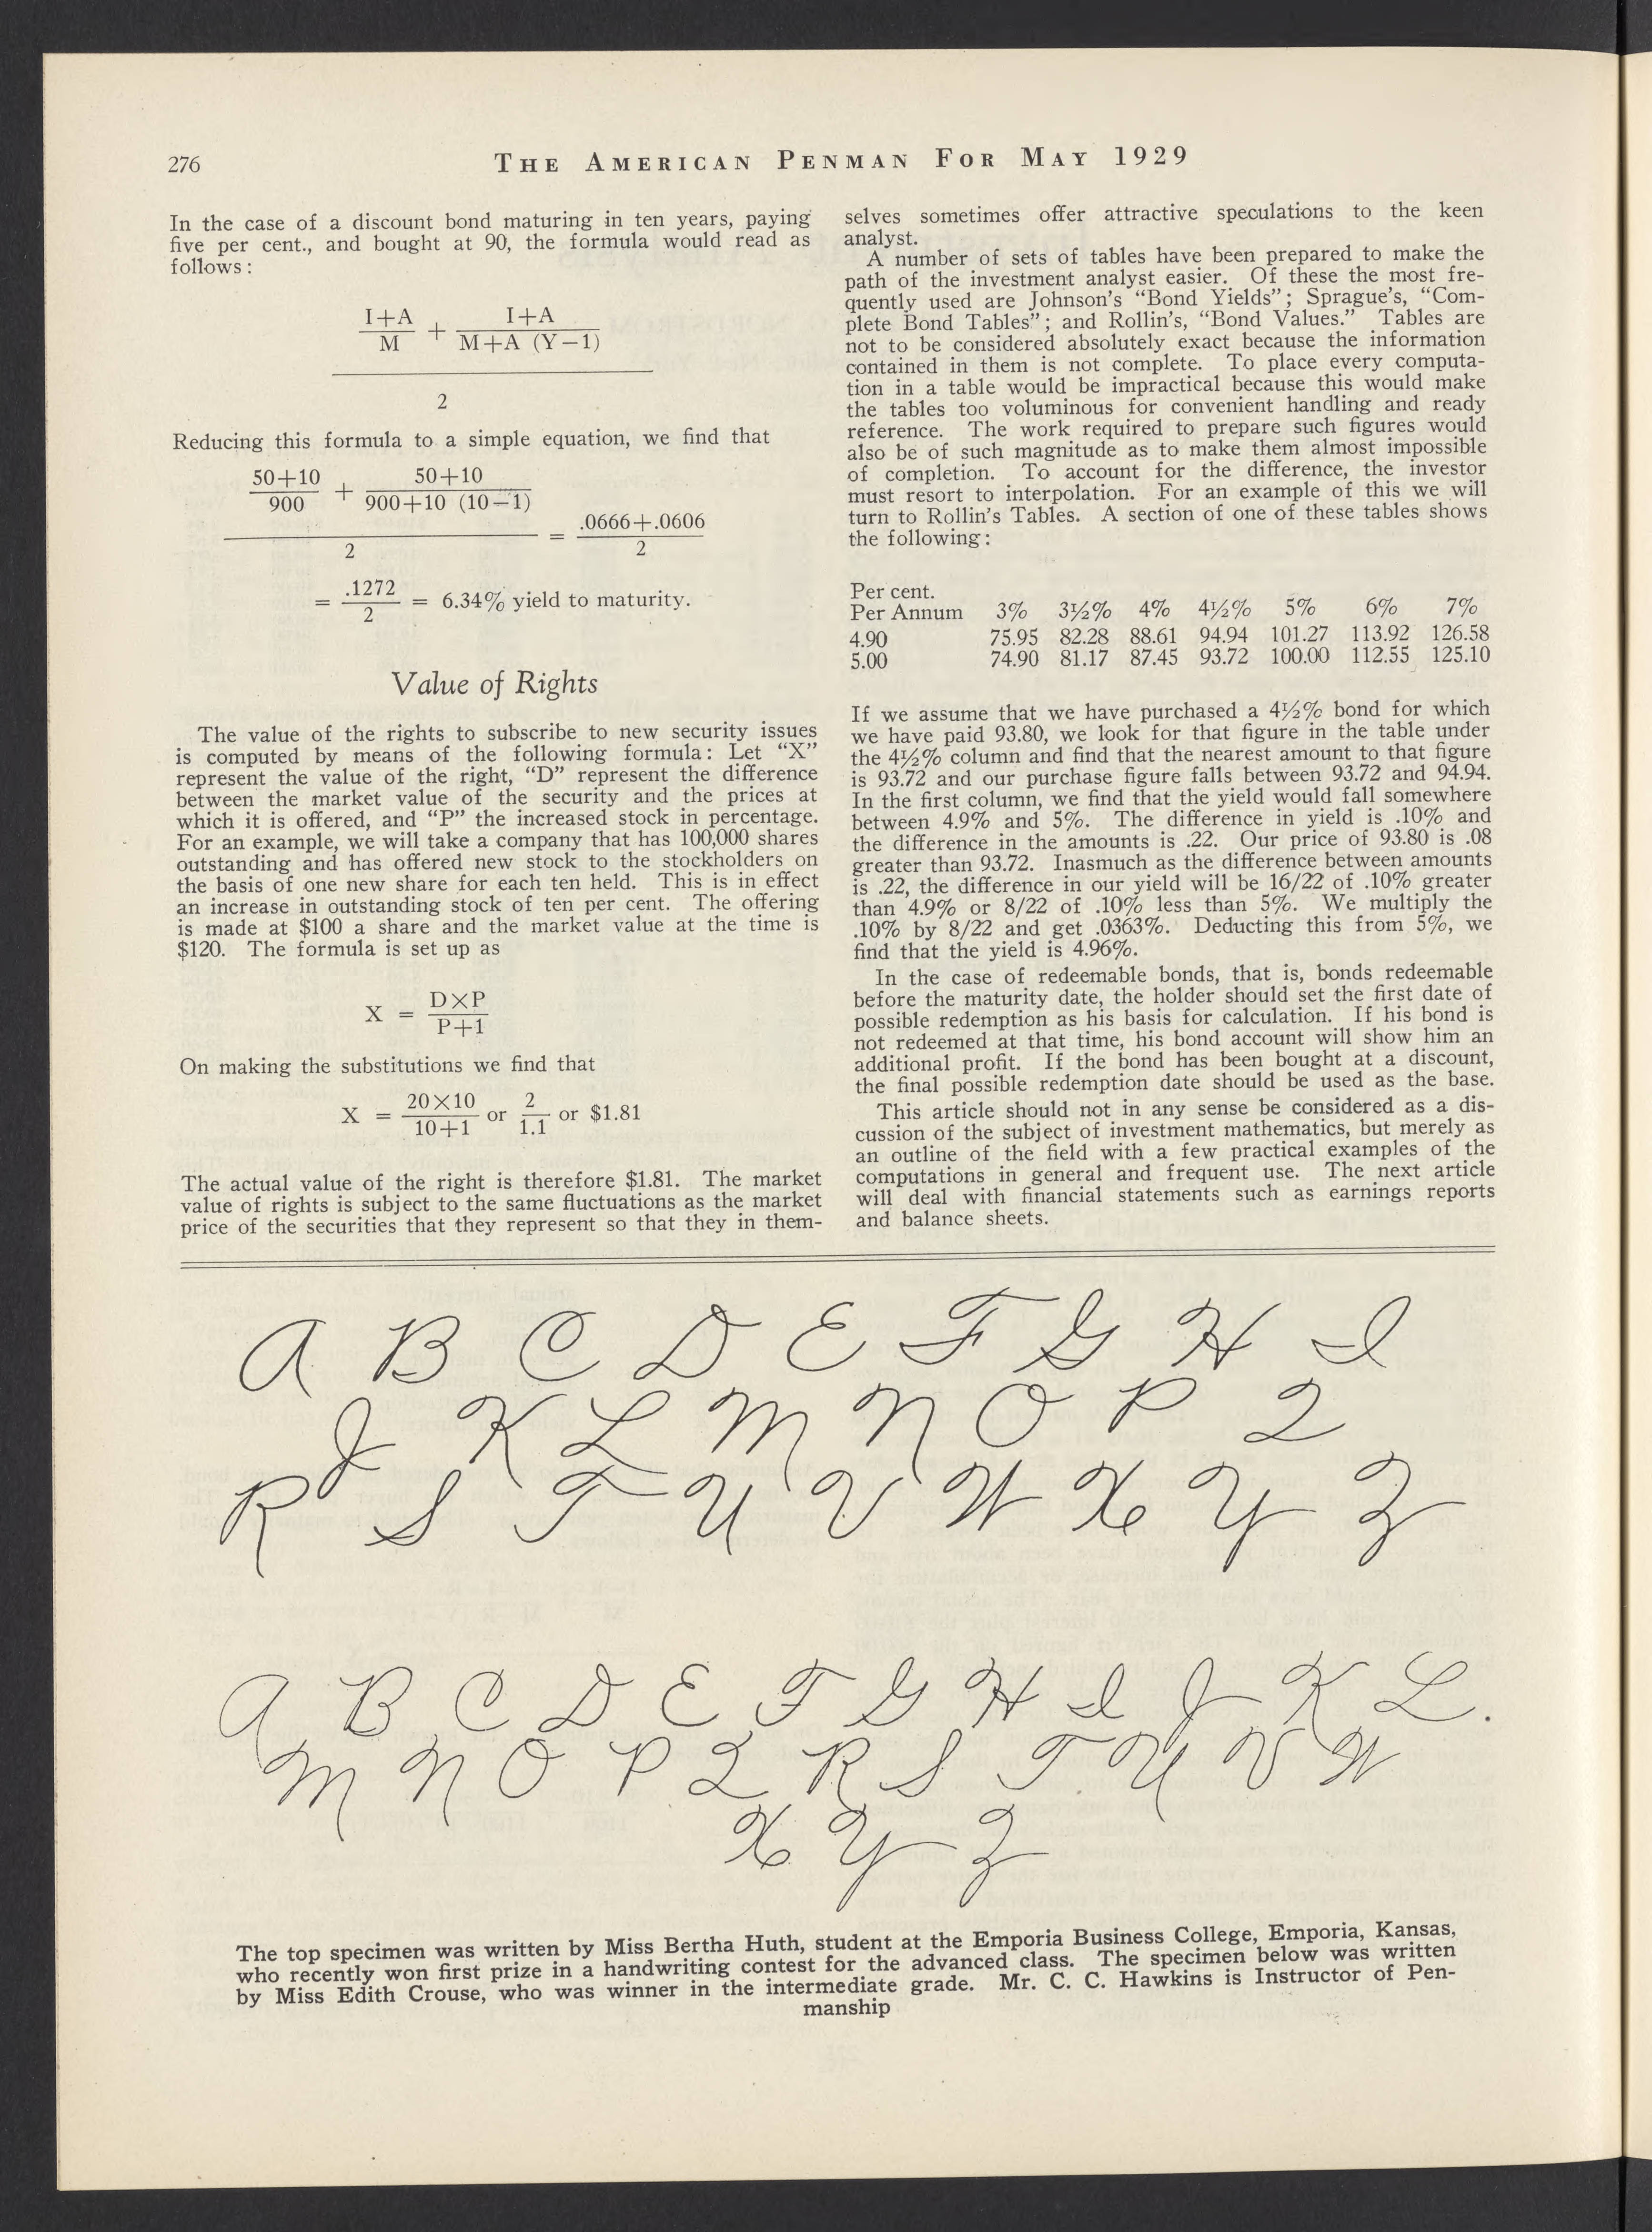 276
THE AMERICAN PENMAN FOR MAY 1929
In the case of a discount bond maturing in ten years, paying
five per cent., and bought at 90, the formula would read as
follows:
I+A I+A
+
M M+A (Y-1)
2
Reducing this formula to a simple equation, we find that
50+10 50+10
+
900 900+10 (10-1)
.0666+.0606
=
2 2
.1272
= = 6.34% yield to maturity.
2
Value of Rights
The value of the rights to subscribe to new security issues
is computed by means of the following formula: Let "X"
represent the value of the right, "D" represent the difference
between the market value of the security and the prices at
which it is offered, and "P" the increased stock in percentage.
For an example, we will take a company that has 100,000 shares
outstanding and has offered new stock to the stockholders on
the basis of one new share for each ten held. This is in effect
an increase in outstanding stock of ten per cent. The offering
is made at $100 a share and the market value at the time is
$120. The formula is set up as
D×P
X =
P+1
On making the substitutions we find that
20×10 2
X = or or $1.81
10+1 1.1
The actual value of the right is therefore $1.81. The market
value of rights is subject to the same fluctuations as the market
price of the securities that they represent so that they in them-
selves sometimes offer attractive speculations to the keen
analyst.
A number of sets of tables have been prepared to make the
path of the investment analyst easier. Of these the most fre-
quently used are Johnson's "Bond Yields"; Sprague's, "Com-
plete Bond Tables"; and Rollin's, "Bond Values." Tables are
not to be considered absolutely exact because the information
contained in them is not complete. To place every computa-
tion in a table would be impractical because this would make
the tables too voluminous for convenient handling and ready
reference. The work required to prepare such figures would
also be of such magnitude as to make them almost impossible
of completion. To account for the difference, the investor
must resort to interpolation. For an example of this we will
turn to Rollin's Tables. A section of one of these tables shows
the following:
Per cent.
Per Annum 3% 3½% 4% 4½% 5% 6% 7%
4.90 75.95 82.28 88.61 94.94 101.27 113.92 126.58
5.00 74.90 81.17 87.45 93.72 100.00 112.55 125.10
If we assume that we have purchased a 4½% bond for which
we have paid 93.80, we look for that figure in the table under
the 4½% column and find that the nearest amount to that figure
is 93.72 and our purchase figure falls between 93.72 and 94.94.
In the first column, we find that the yield would fall somewhere
between 4.9% and 5%. The difference in yield is .10% and
the difference in the amounts is .22. Our price of 93.80 is .08
greater than 93.72. Inasmuch as the difference between amounts
is .22, the difference in our yield will be 16/22 of .10% greater
than 4.9% or 8/22 of .10% less than 5%. We multiply the
.10% by 8/22 and get .0363%. Deducting this from 5%, we
find that the yield is 4.96%.
In the case of redeemable bonds, that is, bonds redeemable
before the maturity date, the holder should set the first date of
possible redemption as his basis for calculation. If his bond is
not redeemed at that time, his bond account will show him an
additional profit. If the bond has been bought at a discount,
the final possible redemption date should be used as the base.
This article should not in any sense be considered as a dis-
cussion of the subject of investment mathematics, but merely as
an outline of the field with a few practical examples of the
computations in general and frequent use. The next article
will deal with financial statements such as earnings reports
and balance sheets.
A B C D E F G H I
J K L M N O P Q
R S T U V W X Y Z
A B C D E F G H I J K L.
M N O P Q R S T U V W
X Y Z
The top specimen was written by Miss Bertha Huth, student at the Emporia Business College, Emporia, Kansas,
who recently won first prize in a handwriting contest for the advanced class. The specimen below was written
by Miss Edith Crouse, who was winner in the intermediate grade. Mr. C. C. Hawkins is Instructor of Pen-
manship